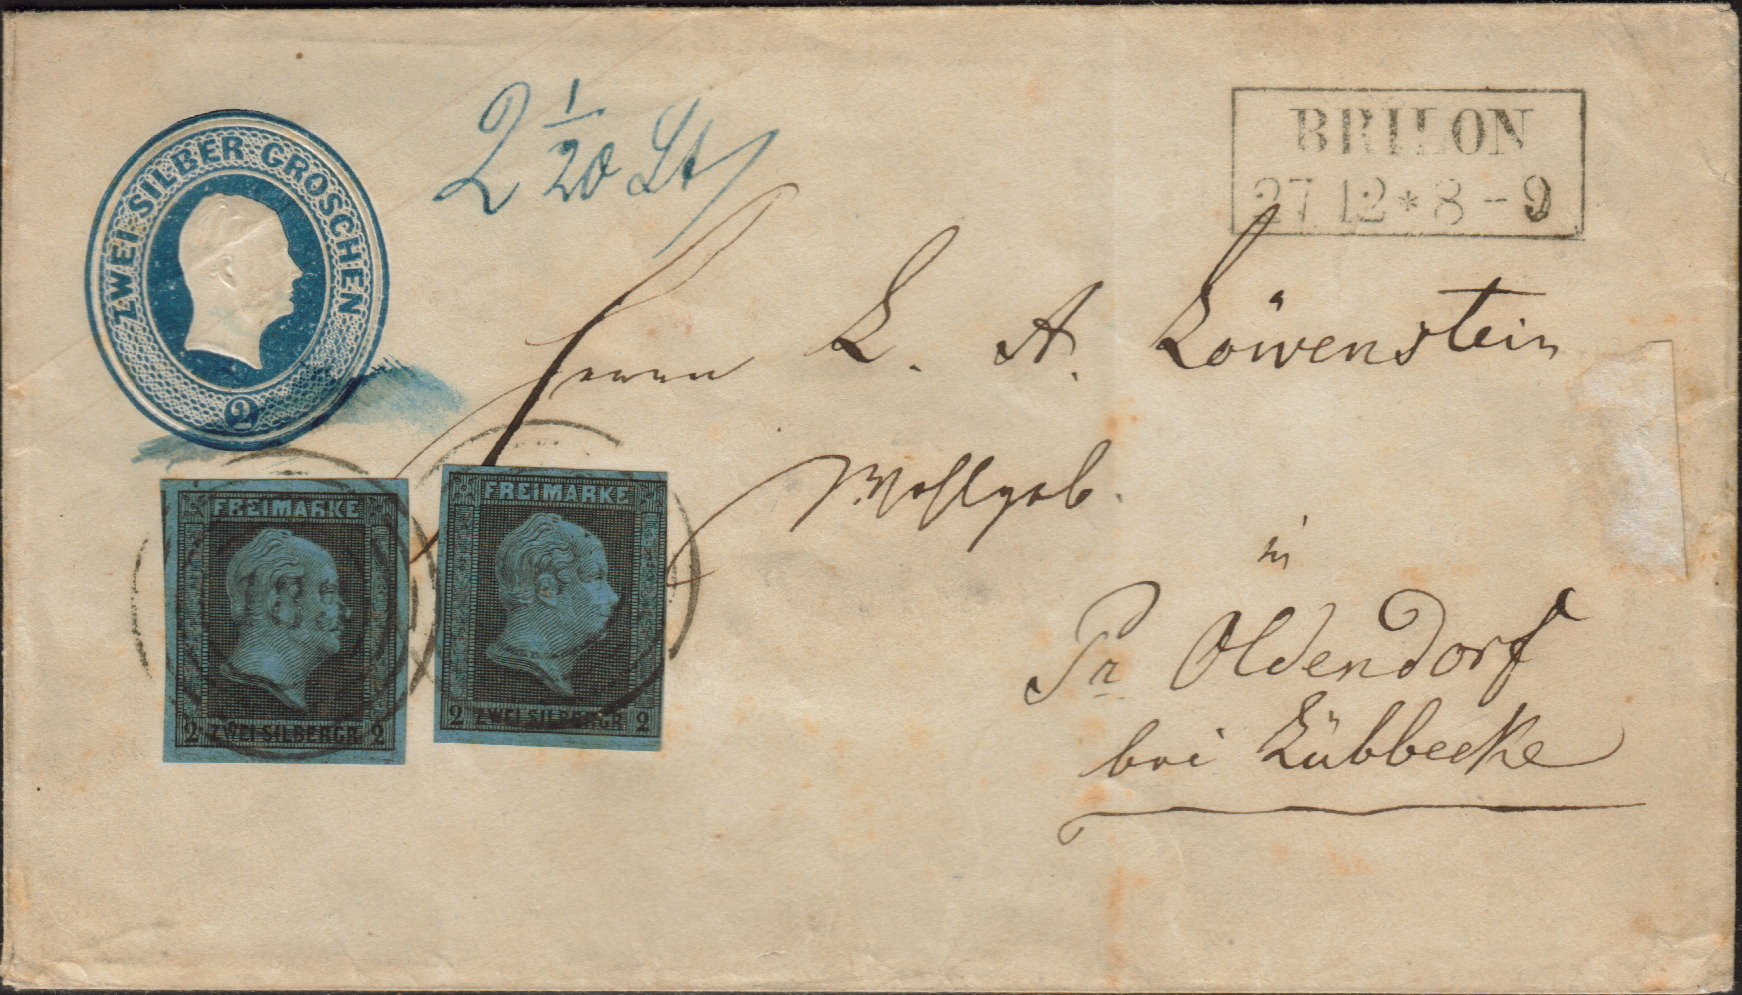 ZWEI SILBER GROSCHEN
2
2 1/20 Lt
BRILON
27 12 * 8 - 9
Herrn L. A. Löwenstein
Wohlgeb.
in
Pr Oldendorf
bei Lübbecke
FREIMARKE
2 ZWEI SILBERGR. 2
FREIMARKE
2 ZWEI SILBERGR. 2